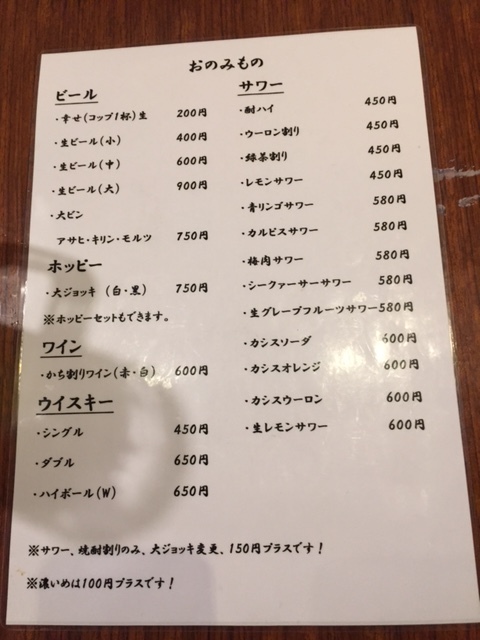 おのみもの
ビール
・幸せ(コップ1杯)生 200円
・生ビール(小) 400円
・生ビール(中) 600円
・生ビール(大) 900円
・大ビン
アサヒ・キリン・モルツ 750円
ホッピー
・大ジョッキ (白・黒) 750円
※ホッピーセットもできます。
ワイン
・かち割りワイン(赤・白) 600円
ウイスキー
・シングル 450円
・ダブル 650円
・ハイボール(W) 650円
サワー
・酎ハイ 450円
・ウーロン割り 450円
・緑茶割り 450円
・レモンサワー 450円
・青リンゴサワー 580円
・カルピスサワー 580円
・梅肉サワー 580円
・シークァーサーサワー 580円
・生グレープフルーツサワー580円
・カシスソーダ 600円
・カシスオレンジ 600円
・カシスウーロン 600円
・生レモンサワー 600円
※サワー、焼酎割りのみ、大ジョッキ変更、150円プラスです!
※濃いめは100円プラスです!